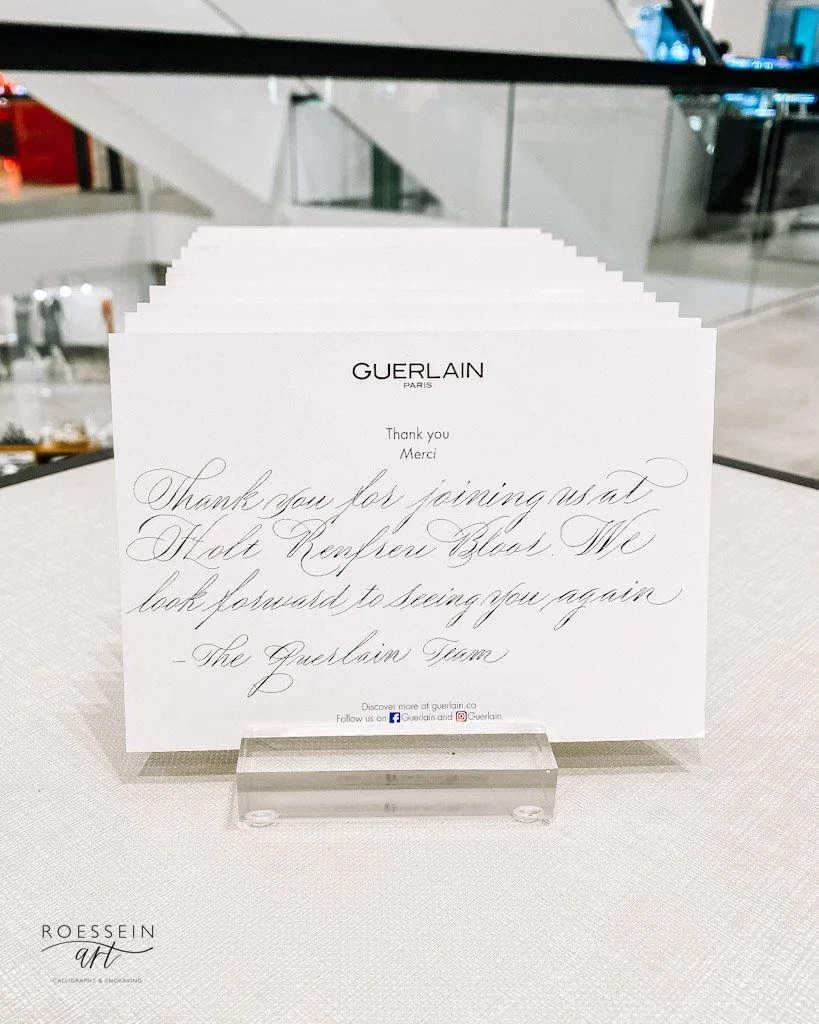 GUERLAIN
PARIS
Thank you
Merci
Thank you for joining us at
Holt Renfrew Bloor. We
look forward to seeing you again
- The Guerlain Team
Discover more at guerlain.ca
Follow us on Guerlain and Guerlain
ROESSEIN
art
CALLIGRAPHY & ENGRAVING